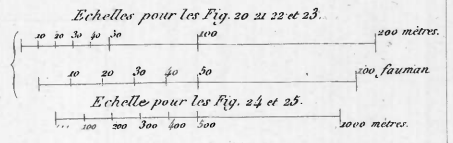 Echelles pour les Fig. 20 21 22 et 23.
10 20 30 40 50 100 200 mètres.
10 20 30 40 50 100 fauman
Echelle pour les Fig. 24 et 25.
... 100 200 300 400 500 1000 mètres.